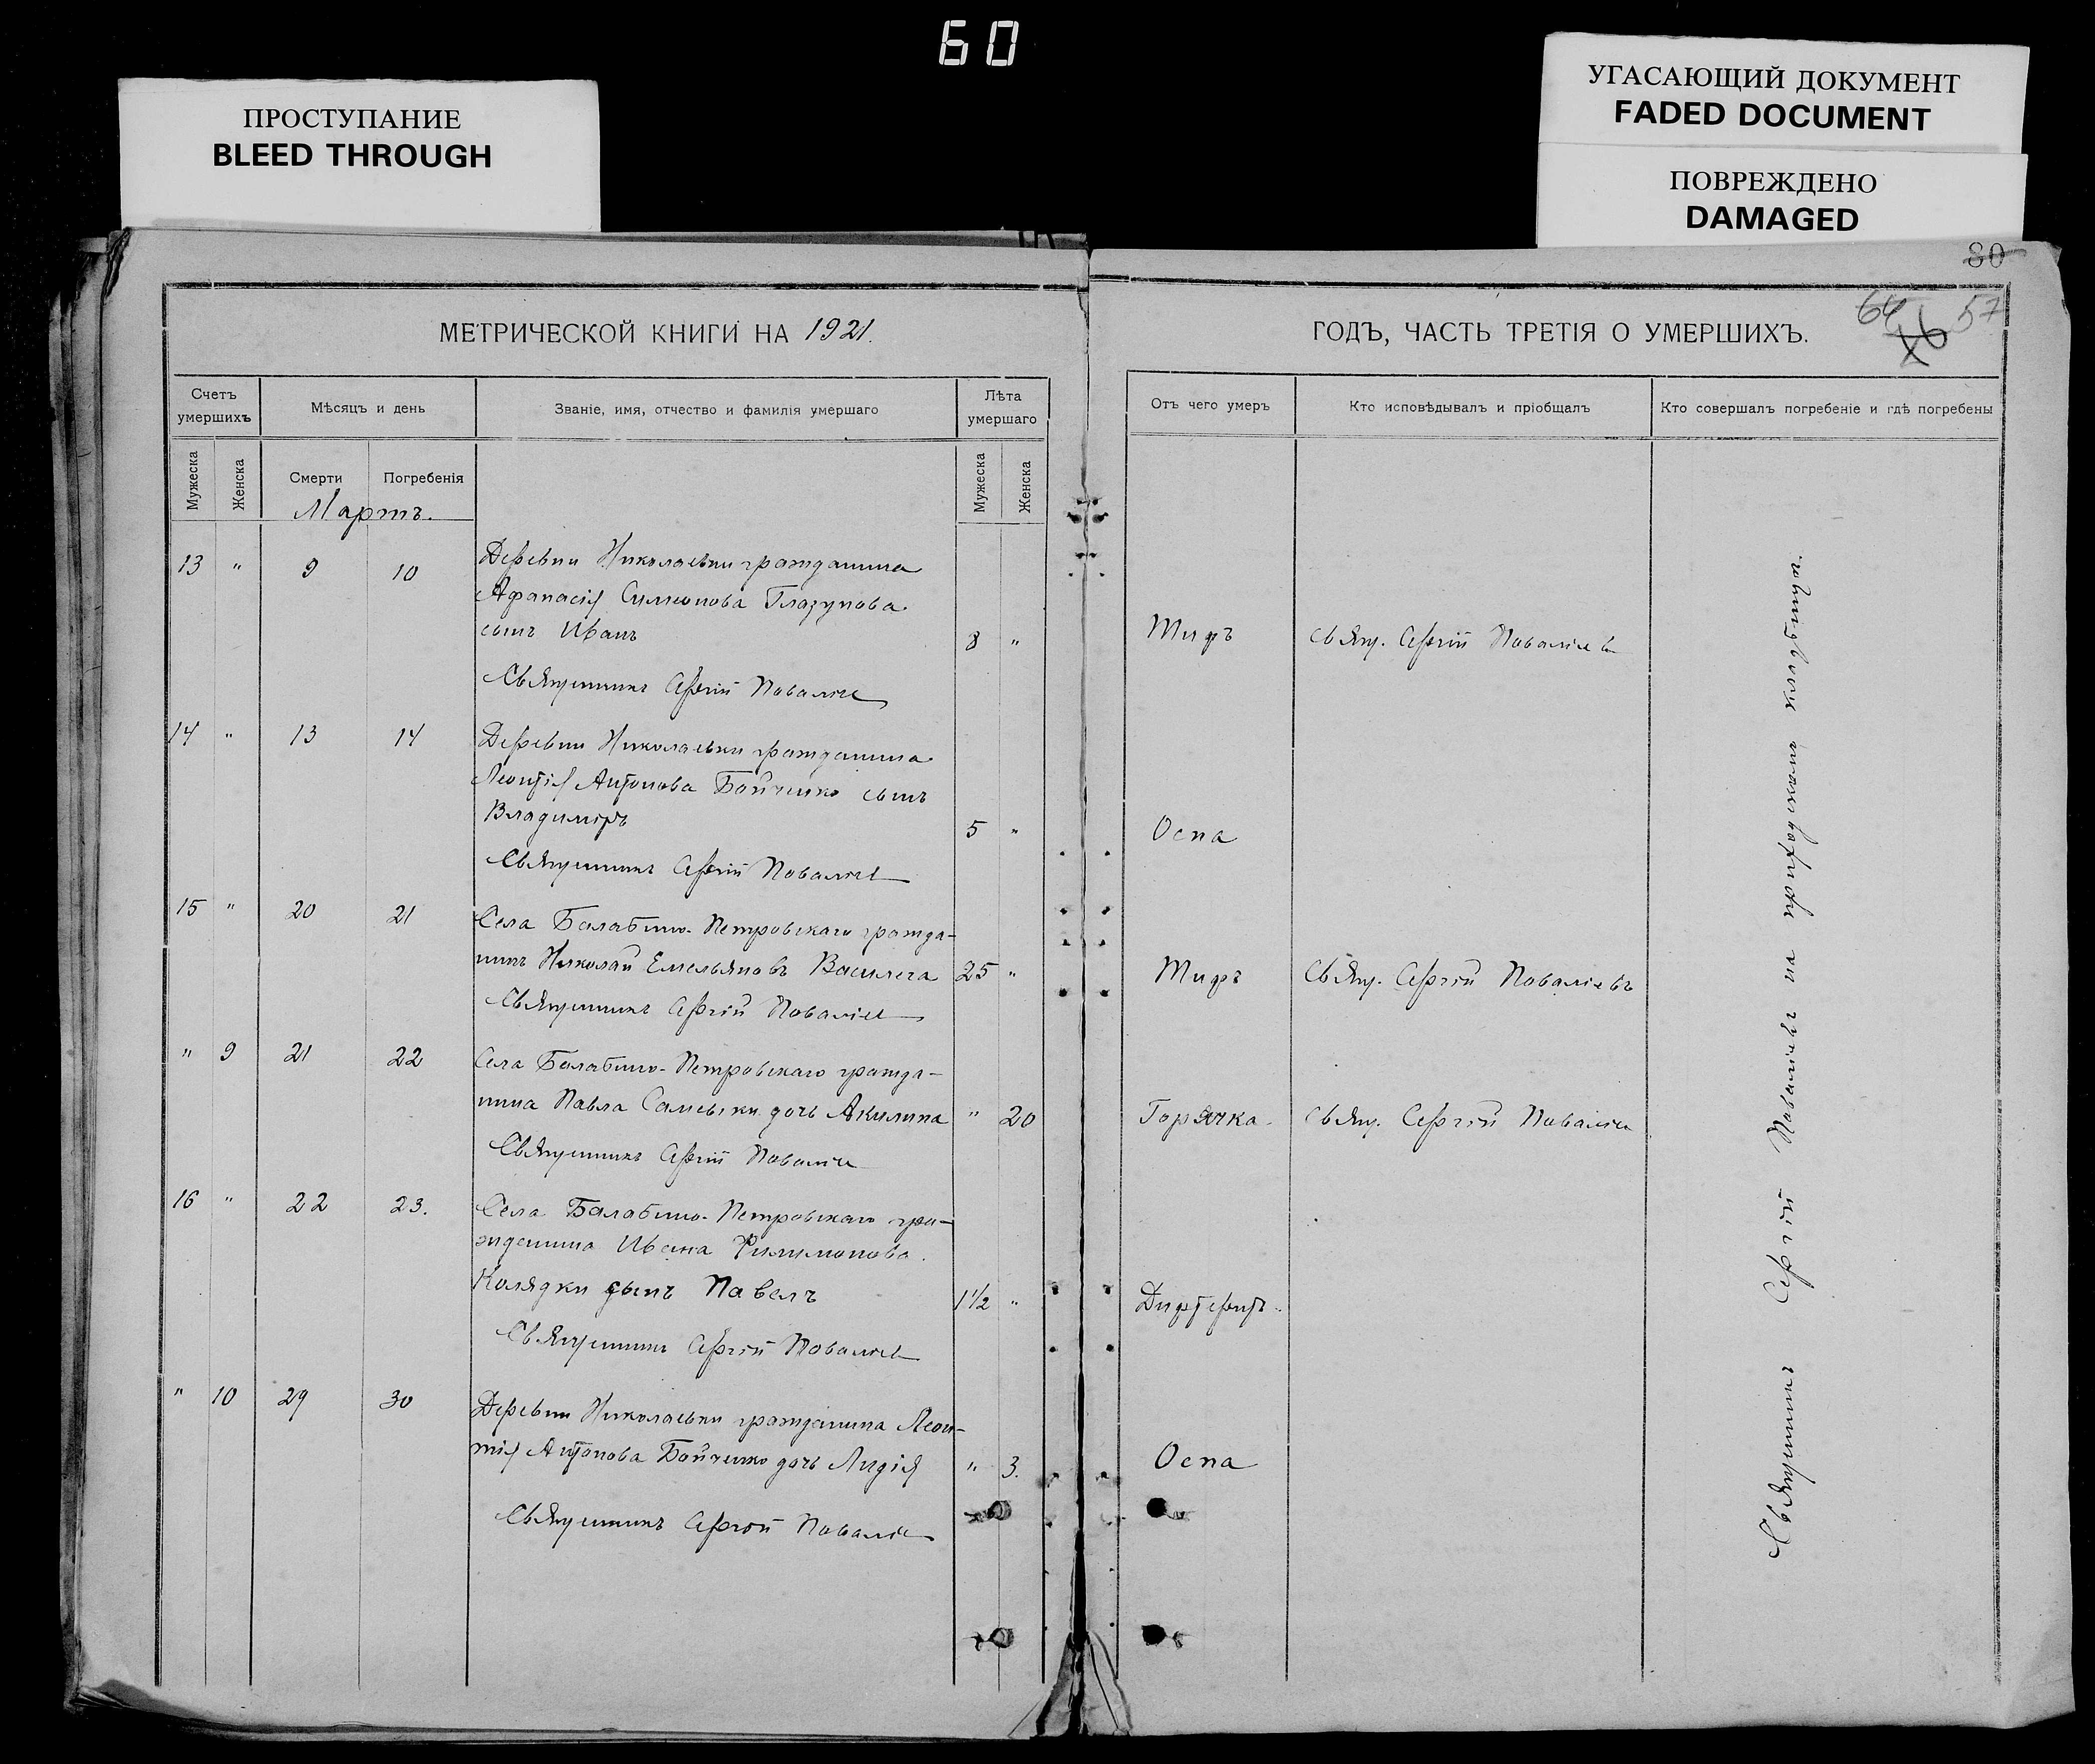 60
ПРОСТУПАНИЕ
BLEED THROUGH
УГАСАЮЩИЙ ДОКУМЕНТ
FADED DOCUMENT
ПОВРЕЖДЕНО
DAMAGED
80
64 46 57
МЕТРИЧЕСКОЙ КНИГИ НА 1921.
ГОДЪ, ЧАСТЬ ТРЕТІЯ О УМЕРШИХЪ.
Счетъ умершихъ
Мѣсяцъ и день
Званіе, имя, отчество и фамилія умершаго
Лѣта умершаго
Отъ чего умеръ
Кто исповѣдывалъ и пріобщалъ
Кто совершалъ погребеніе и гдѣ погребены
Мужеска
Женска
Смерти
Погребенія
Мужеска
Женска
Мартъ.
13 " 9 10 Деревни Николаевки гражданина
Афанасія Симеонова Глазунова
сынъ Иванъ 8 " Тифъ Свящ. Сергій Поваліевъ
Священникъ Сергій Поваліев
14 " 13 14 Деревни Николаевки гражданина
Леонтія Антонова Бойченко сынъ
Владиміръ 5 " Оспа
Священникъ Сергій Поваліев
15 " 20 21 Села Балабино-Петровскаго гражда-
нинъ Николай Емельяновъ Василега 25 " Тифъ Свящ. Сергій Поваліевъ
Священникъ Сергій Поваліев
" 9 21 22 Села Балабино-Петровскаго гражда-
нина Павла дочь Акилина " 20 Горячка. Свящ. Сергій Поваліев
Священникъ Сергій Поваліев
16 " 22 23. Села Балабино-Петровскаго гра-
жданина Ивана Филимонова
Колядки сынъ Павелъ 1½ " Дифтеритъ.
Священникъ Сергій Поваліев
" 10 29 30 Деревни Николаевки гражданина Леон-
тія Антонова Бойченко дочь Лидія " 3. Оспа
Священникъ Сергій Поваліев
Священникъ Сергій Поваліевъ на приходскомъ кладбищѣ.